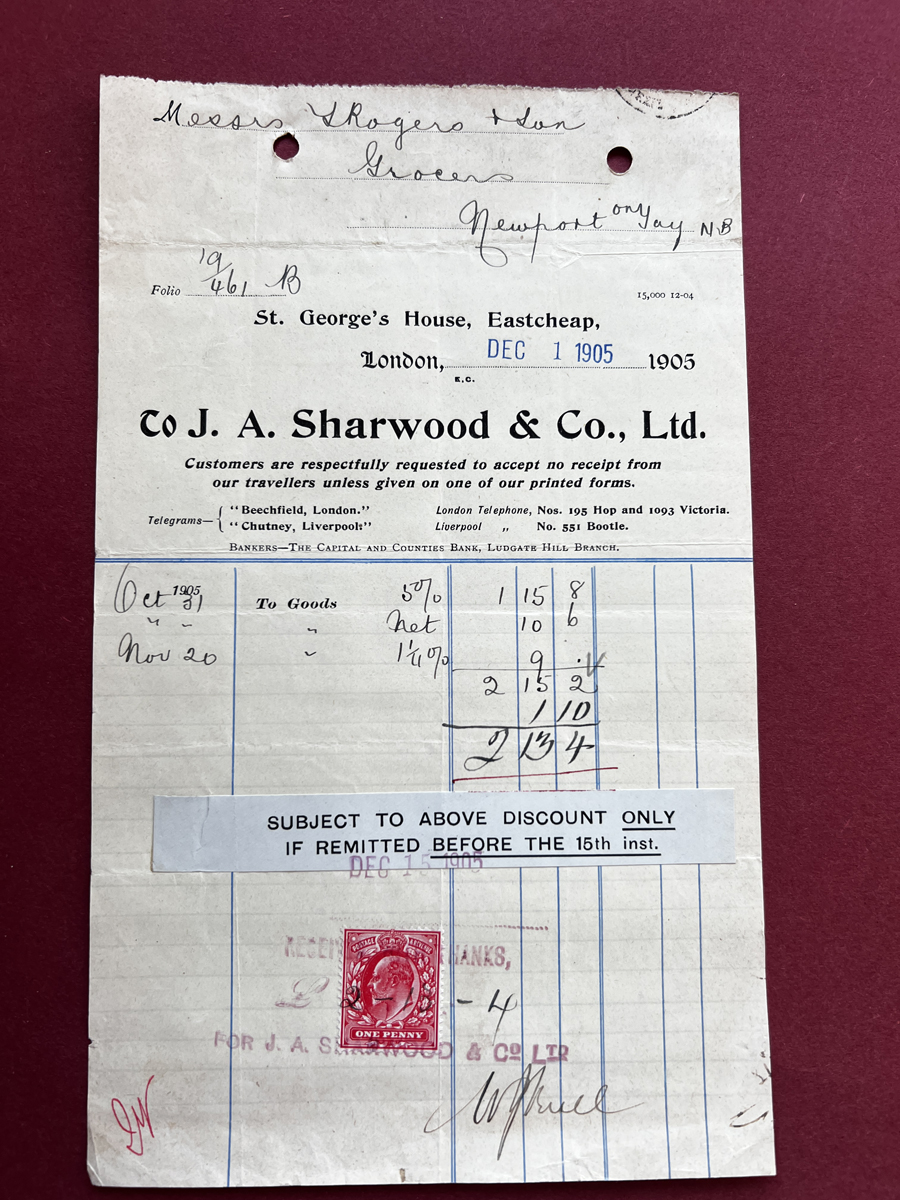 Messrs Rogers & Son
Grocers
Newport on Tay N B
Folio 19/461 B
15,000 12-04
St. George's House, Eastcheap,
London, DEC 1 1905 1905
E.C.
To J. A. Sharwood & Co., Ltd.
Customers are respectfully requested to accept no receipt from
our travellers unless given on one of our printed forms.
Telegrams— "Beechfield, London." London Telephone, Nos. 195 Hop and 1093 Victoria.
"Chutney, Liverpool." Liverpool " No. 551 Bootle.
BANKERS—THE CAPITAL AND COUNTIES BANK, LUDGATE HILL BRANCH.
1905
Oct 31 To Goods 5% 1 15 8
" " " Net 10 6
Nov 20 " 1¼% 9 .
2 15 2
1 10
2 13 4
SUBJECT TO ABOVE DISCOUNT ONLY
IF REMITTED BEFORE THE 15th inst.
DEC 15 1905
POSTAGE REVENUE
£ 2 - 13 - 4
ONE PENNY
FOR J. A. SHARWOOD & Co LTD